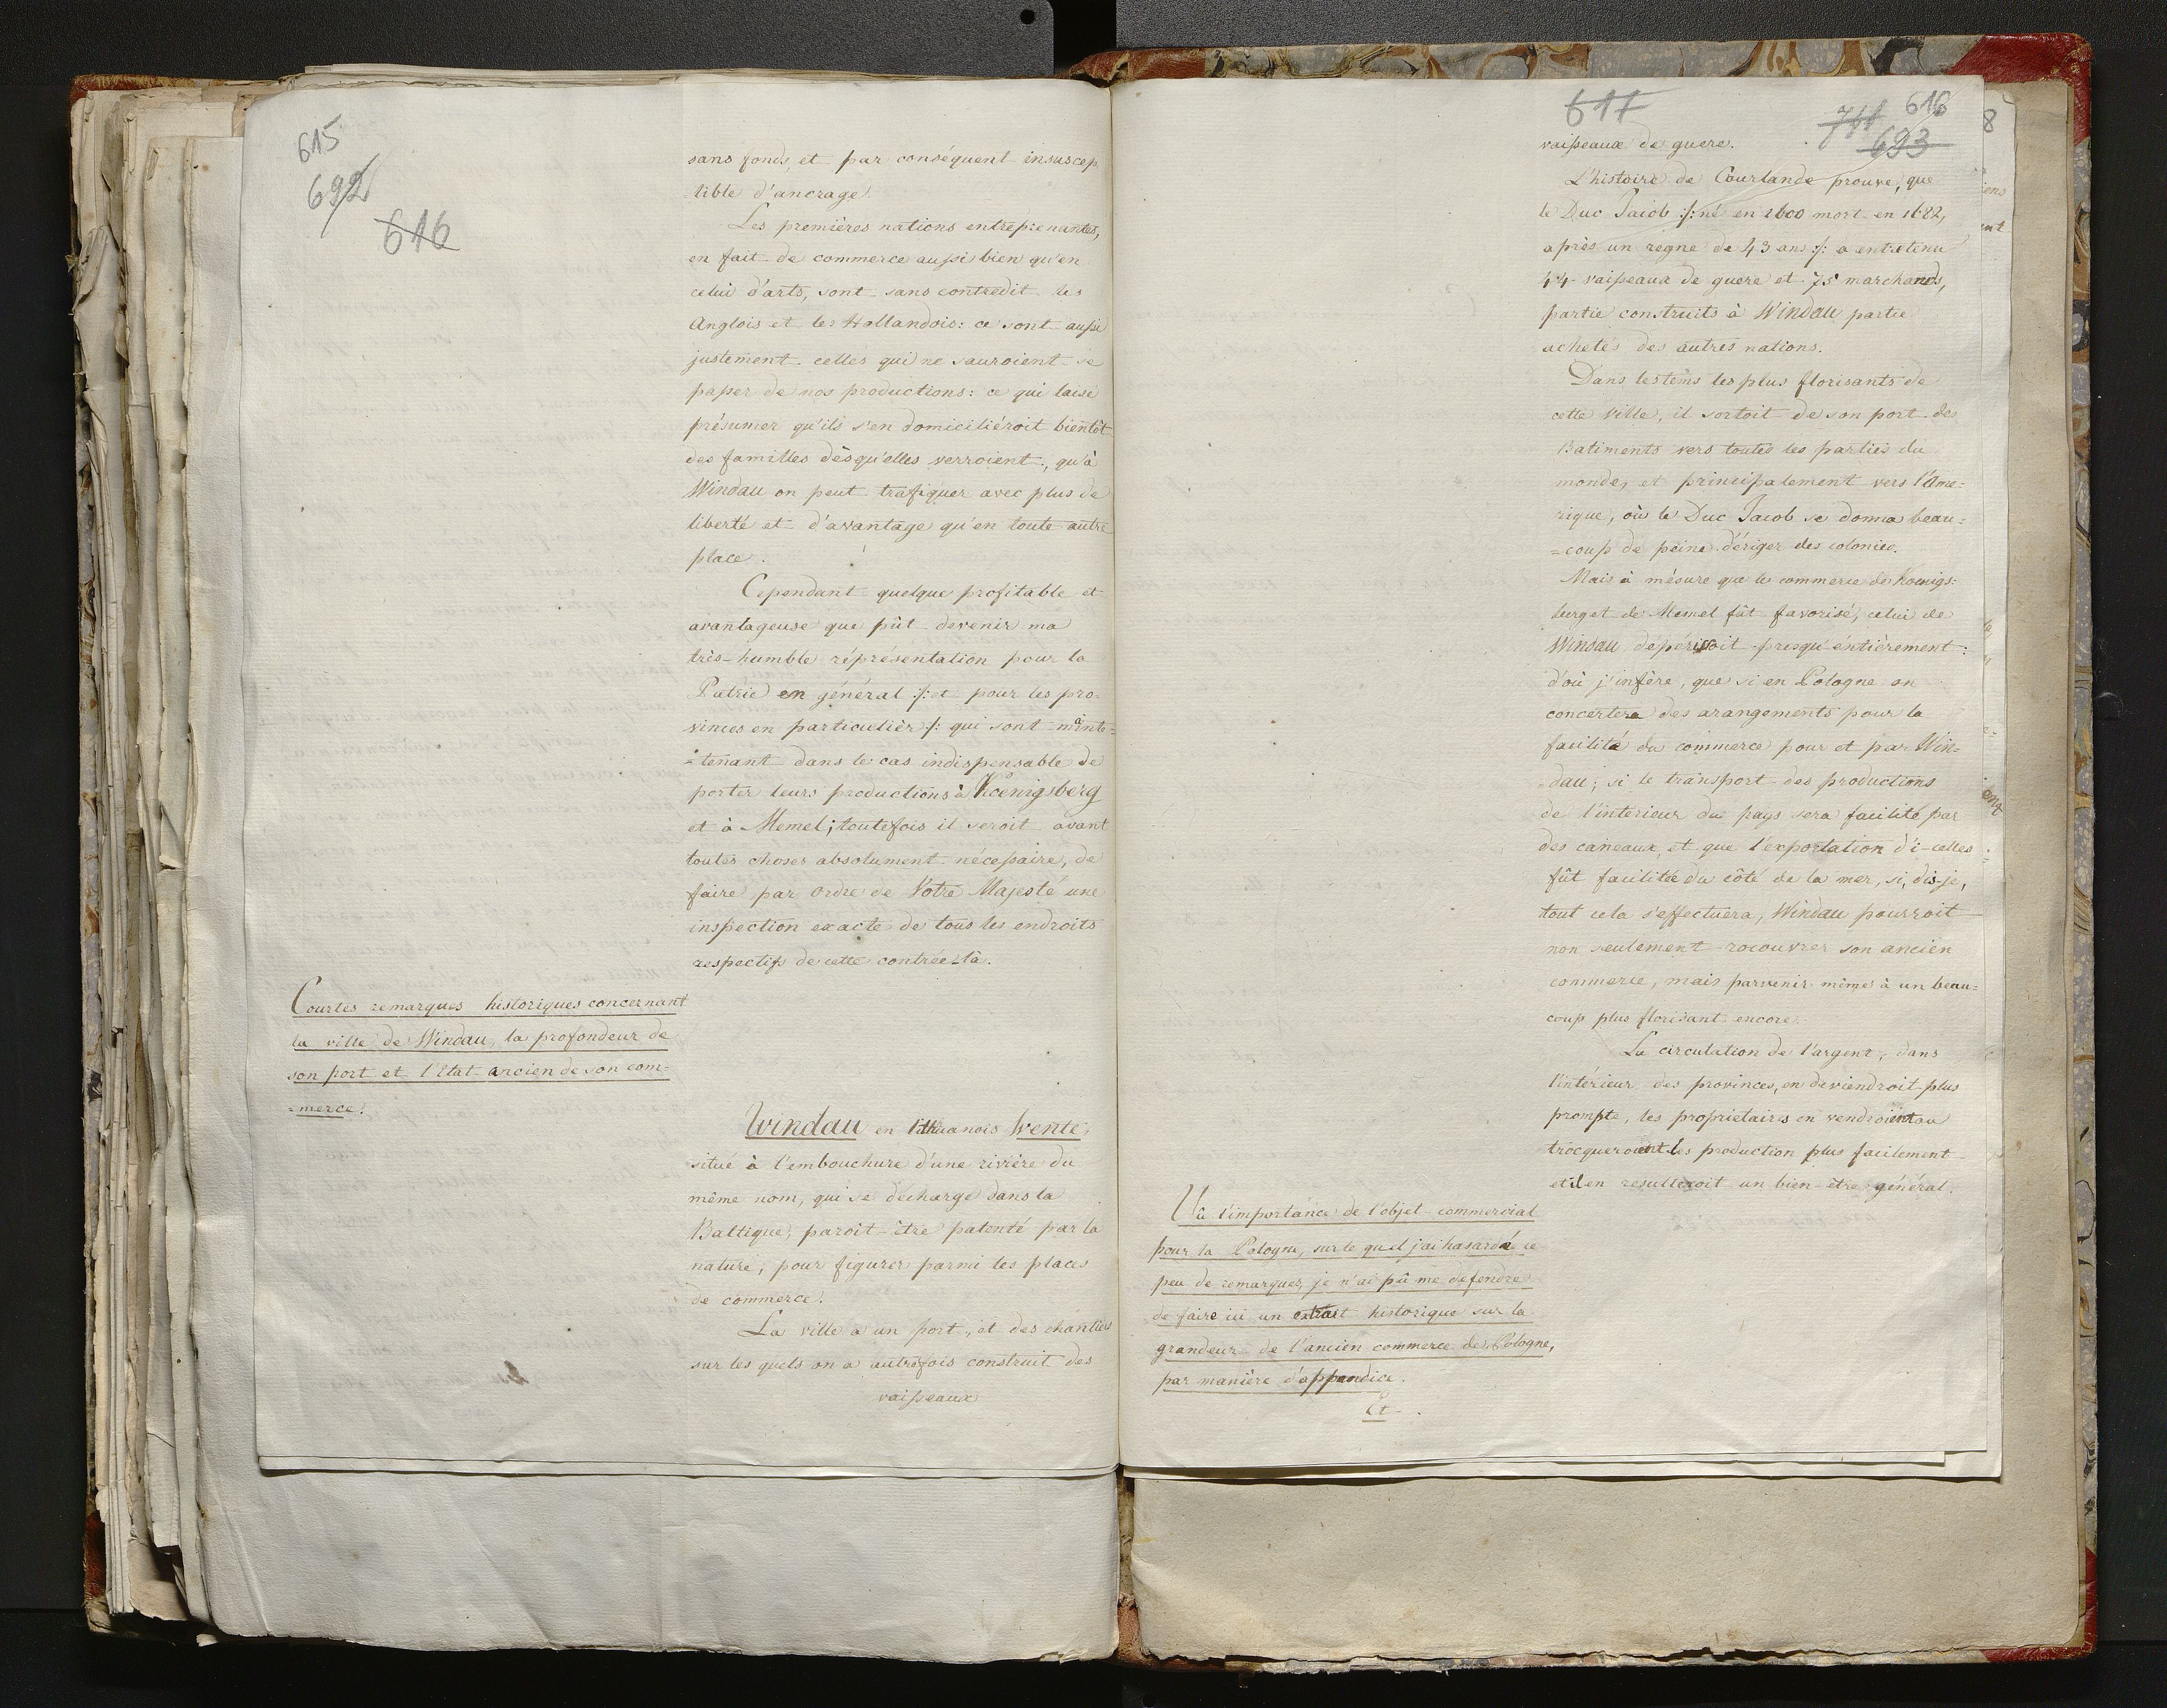 615
692
616
sans fonds et par conséquent insuscep
tible d'ancrage.
Les premières nations entreprenantes,
en fait de commerce aussi bien qu'en
celui d'arts, sont sans contredit les
Anglois et les Hollandois: ce sont aussi
justement celles qui ne sauroient se
passer de nos productions: ce qui laise
présumer qu'ils s'en domiciliéroit bientôt
des familles dèsqu'elles verroient, qu'à
Windau on peut trafiquer avec plus de
liberté et d'avantage qu'en toute autre
place.
Cependant quelque profitable et
avantageuse que pût devenir ma
très-humble réprésentation pour la
Patrie en général /: et pour les pro-
vinces en particuliér /: qui sont mainte=
=tenant dans le cas indispensable de
porter leurs productions à Koenigsberg
et à Memel; toutefois il seroit avant
toutes choses absolument nécessaire, de
faire par ordre de Votre Majesté une
inspection exacte de tous les endroits
respectifs de cette contrée-là.
Courtes remarques historiques concernant
la ville de Windau, la profondeur de
son port et l'Etat ancien de son com=
=merce.
Windau en lithuanois Wente,
situé à l'embouchure d'une rivière du
même nom, qui se décharge dans la
Baltique, paroit être patenté par la
nature, pour figurer parmi les places
de commerce.
La ville a un port, et des chantiers
sur les quels on a autrefois construit des
vaisseaux
617
711
616
693
vaisseaux de guere.
L'histoire de Courlande prouve, que
le Duc Jacob /: né en 1600 mort en 1682,
après un regne de 43 ans :/: a entretenu
44 vaisseaux de guere et 75 marchands,
partie construits à Windau partie
achetés des autres nations.
Dans les tems les plus florisants de
cette ville, il sortoit de son port des
Batiments vers toutes les parties du
monde, et principalement vers l'Ame=
rique, où le Duc Jacob se donna beau=
=coup de peine d'ériger des colonies.
Mais à mésure que le commerce de Koenigs=
berg et de Memel fût favorisé, celui de
Windau dépérissoit presqu'éntièrement:
d'où j'infère, que si en Pologne on
concertera des arangements pour la
facilité du commerce pour et par Win=
=dau; si le transport des productions
de l'interieur du pays sera facilité par
des caneaux, et que l'exportation d'i-celles
fût facilitée du côté de la mer, si, dis-je,
tout cela s'effectuera, Windau pourroit
non seulement rocouvrer son ancien
commerce, mais parvenir même à un beau=
coup plus florisant encore.
La circulation de l'argent, dans
l'intérieur des provinces, en deviendroit plus
prompte, les proprietaires en vendroient ou
trocqueroient les production plus facilement
et il en resulteroit un bien-être général.
Vû l'importance de l'objet commercial
pour la Pologne, sur le quel j'ai hasardé ce
peu de remarques, je n'ai pû me defendre
de faire ici un extrait historique sur la
grandeur de l'ancien commerce de Pologne,
par manière d'appendice.
Et
8